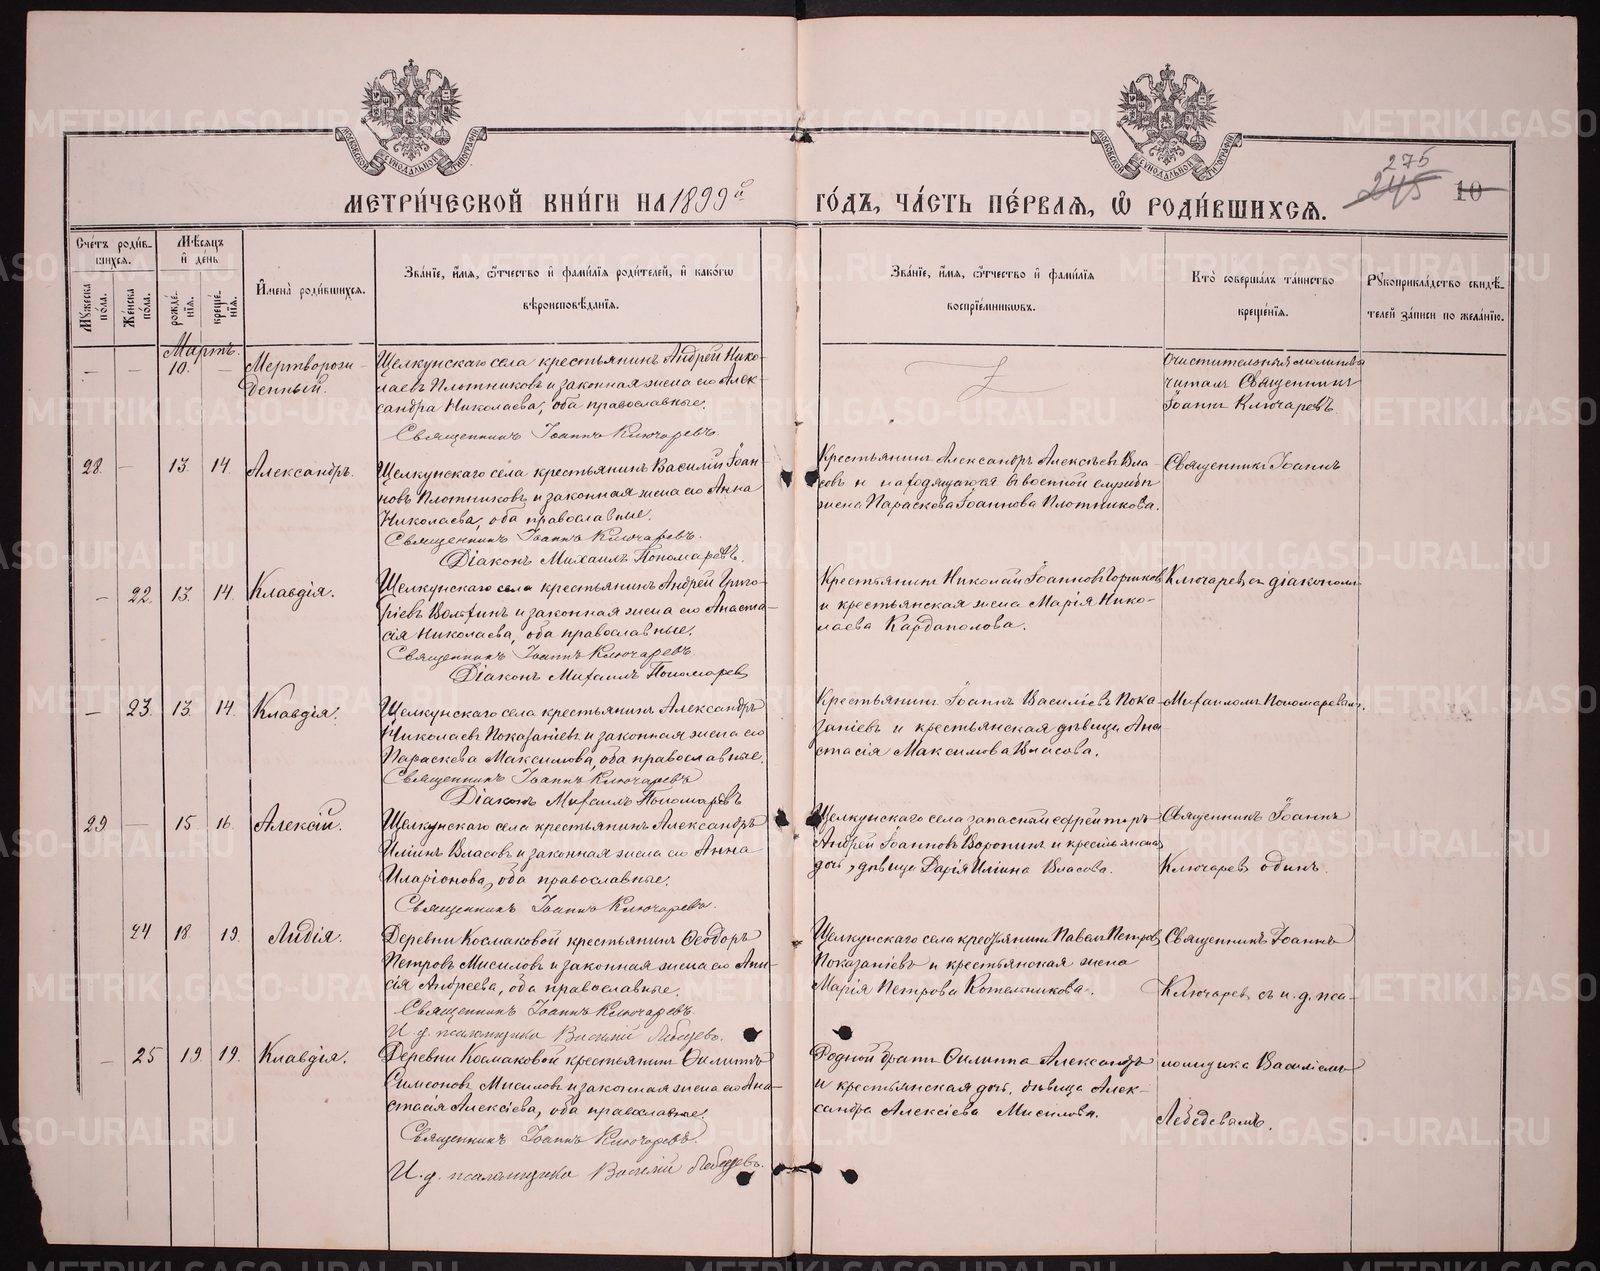 МОСКОВСКОЙ СѴНОДАЛЬНОЙ ТИПОГРАФІИ
МОСКОВСКОЙ СѴНОДАЛЬНОЙ ТИПОГРАФІИ
275
245 10
МЕТРИ́ЧЕСКОЙ КНИ́ГИ НА 1899й ГО́ДЪ, ЧА́СТЬ ПЕ́РВАѦ, Ѡ҆ РОДИ́ВШИХСѦ.
Сче́тъ роди́вшихсѧ.
Мѣ́сѧцъ и҆ де́нь
Мꙋ́жеска по́ла.
Же́нска по́ла.
рожде́нїѧ.
креще́нїѧ.
И҆мена̀ роди́вшихсѧ.
Зва́нїе, и҆́мѧ, ѻ҆́тчество и҆ фами́лїѧ роди́телей, и҆ како́гѡ
вѣроисповѣ́данїѧ.
Зва́нїе, и҆́мѧ, ѻ҆́тчество и҆ фами́лїѧ
воспрїе́мникѡвъ.
Кто̀ соверша́лъ та́инство
креще́нїѧ.
Рꙋкоприкла́дство свидѣ́телей за́писи по жела́нїю.
Мартъ.
— — 10. — Мертворожденный.
Щелкунскаго села крестьянинъ Андрей Нико-
лаевъ Плотниковъ и законная жена его Алек-
сандра Николаева, оба православные.
Священникъ Іоаннъ Ключаревъ.
читалъ Священникъ
Іоаннъ Ключаревъ.
28. — 13. 14. Александръ.
Щелкунскаго села крестьянинъ Василій Іоан-
новъ Плотниковъ и законная жена его Анна
Николаева, оба православные.
Священникъ Іоаннъ Ключаревъ.
Діаконъ Михаилъ Пономаревъ.
Крестьянинъ Александръ Алексѣевъ Вла-
совъ и находящагося въ военной службѣ
жена Параскева Іоаннова Плотникова.
Священникъ Іоаннъ
— 22. 13. 14. Клавдія.
Щелкунскаго села крестьянинъ Андрей Григо-
ріевъ и законная жена его Анаста-
сія Николаева, оба православные.
Священникъ Іоаннъ Ключаревъ.
Діаконъ Михаилъ Пономарев
Крестьянинъ Николай Іоанновъ
и крестьянская жена Марія Нико-
лаева Кардаполова.
Ключарев съ діакономъ
— 23. 13. 14. Клавдія.
Щелкунскаго села крестьянинъ Александръ
Николаевъ Показаніевъ и законная жена его
Параскева Максимова, оба православные.
Священникъ Іоаннъ Ключаревъ
Діаконъ Михаилъ Пономаревъ
Крестьянинъ Іоаннъ Василіевъ Пока-
заніевъ и крестьянская дѣвица Ана-
стасія Максимова Власова.
Михаиломъ Пономаревымъ.
29 — 15. 16. Алексій.
Щелкунскаго села крестьянинъ Александръ
Иліинъ Власовъ и законная жена его Анна
Иларіонова, оба православные.
Священникъ Іоаннъ Ключаревъ.
Щелкунскаго села запасной ефрейторъ
Андрей Іоанновъ Воронинъ и крестьянская
дочь, дѣвица Дарія Иліина Власова.
Священникъ Іоаннъ
Ключарев один.
24 18. 19. Лидія.
Деревни Космаковой крестьянинъ Ѳеодоръ
Петровъ Мисиловъ и законная жена его Ани-
сія Андреева, оба православные.
Священникъ Іоаннъ Ключаревъ.
И. д. псаломщика Василій Лебедевъ.
Щелкунскаго села крестьянинъ Павелъ Петровъ
Показаніевъ и крестьянская жена
Марія Петрова Котельникова.
Священникъ Іоаннъ
Ключарев съ и. д. пса-
— 25 19. 19. Клавдія.
Деревни Космаковой крестьянинъ Филиппъ
Симеоновъ Мисиловъ и законная жена его Ана-
стасія Алексіева, оба православные.
Священникъ Іоаннъ Ключаревъ.
И. д. псаломщика Василій Лебедевъ.
Родной братъ Филиппа Александръ
и крестьянская дочь, дѣвица Алек-
сандра Алексіева Мисилова.
ломщика Василіемъ
Лебедевымъ.
METRIKI.GASO-URAL.RU